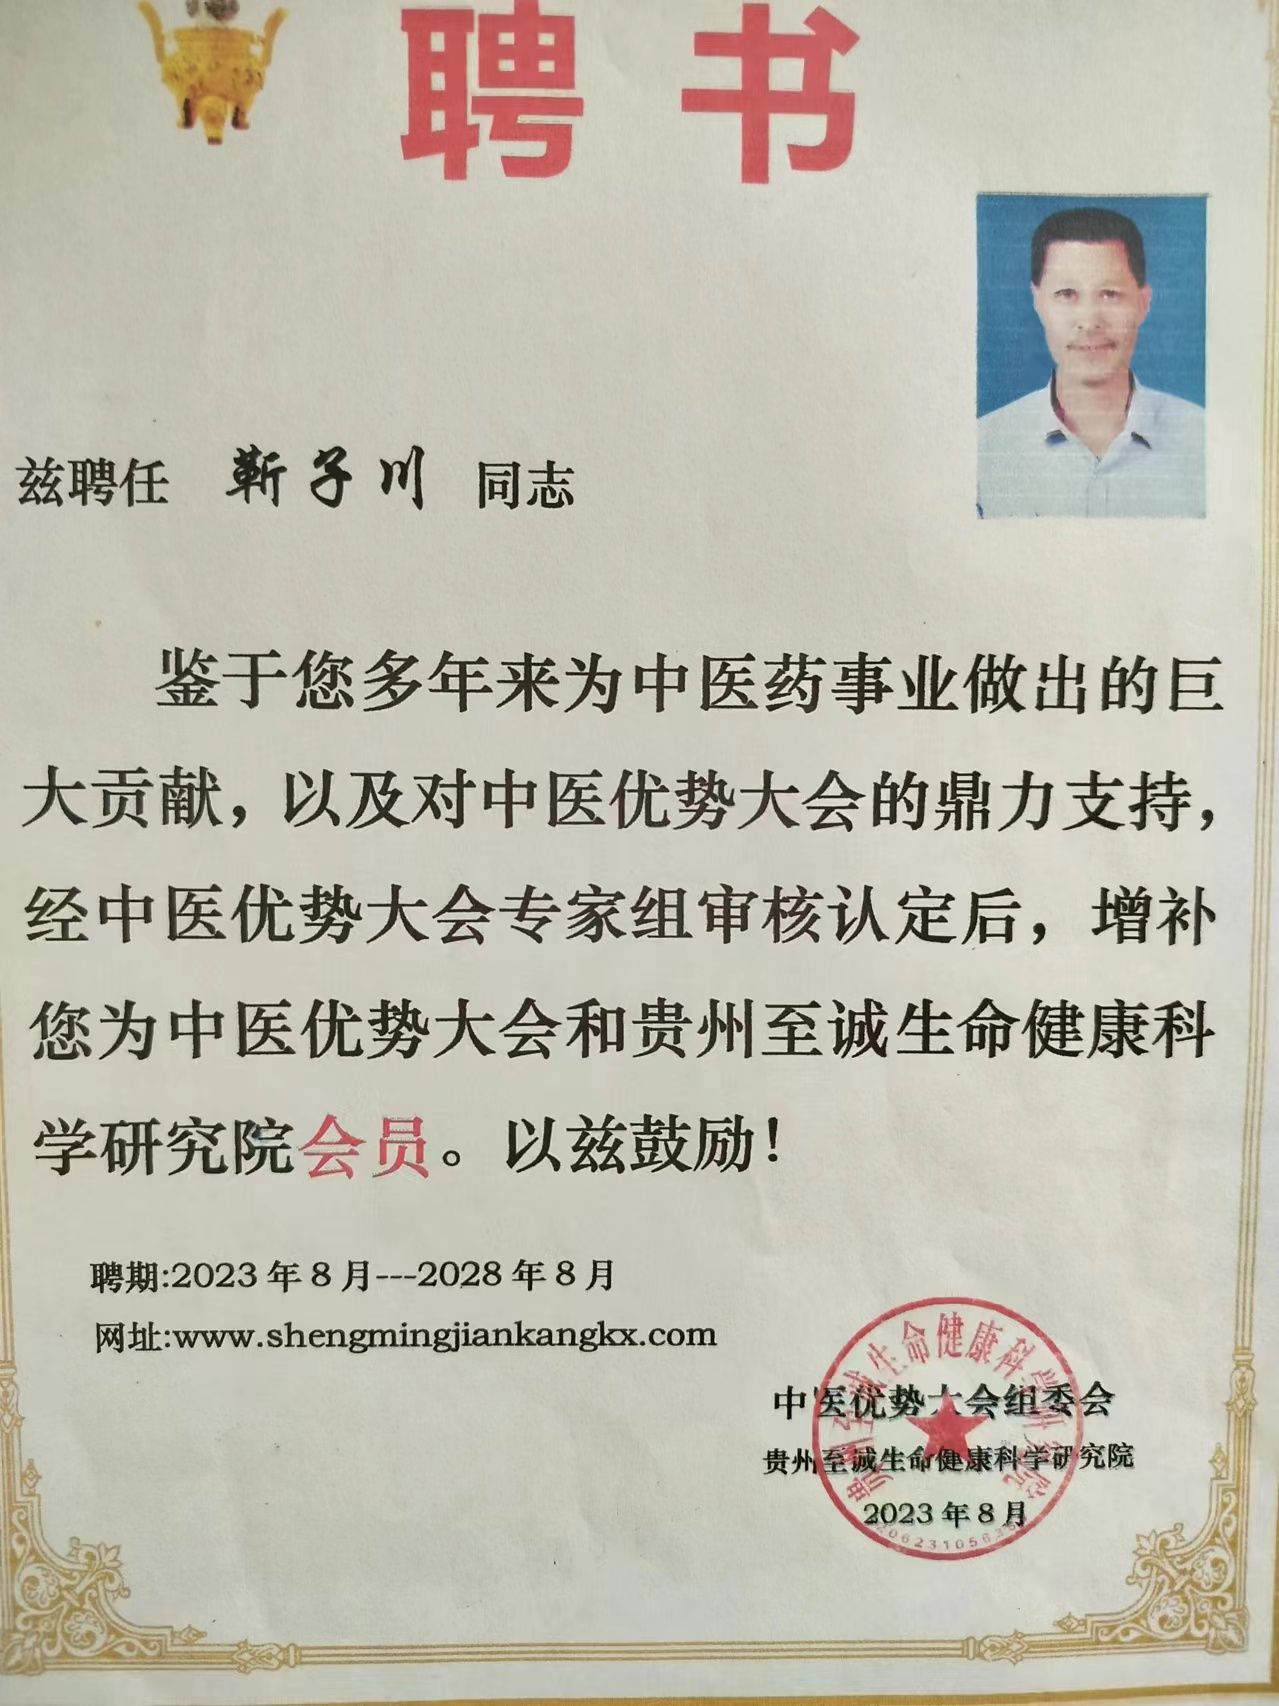 聘书
兹聘任 靳子川 同志
鉴于您多年来为中医药事业做出的巨
大贡献，以及对中医优势大会的鼎力支持，
经中医优势大会专家组审核认定后，增补
您为中医优势大会和贵州至诚生命健康科
学研究院会员。以兹鼓励！
聘期:2023年8月---2028年8月
网址:www.shengmingjiankangkx.com
中医优势大会组委会
贵州至诚生命健康科学研究院
2023年8月
贵州至诚生命健康科学研究院